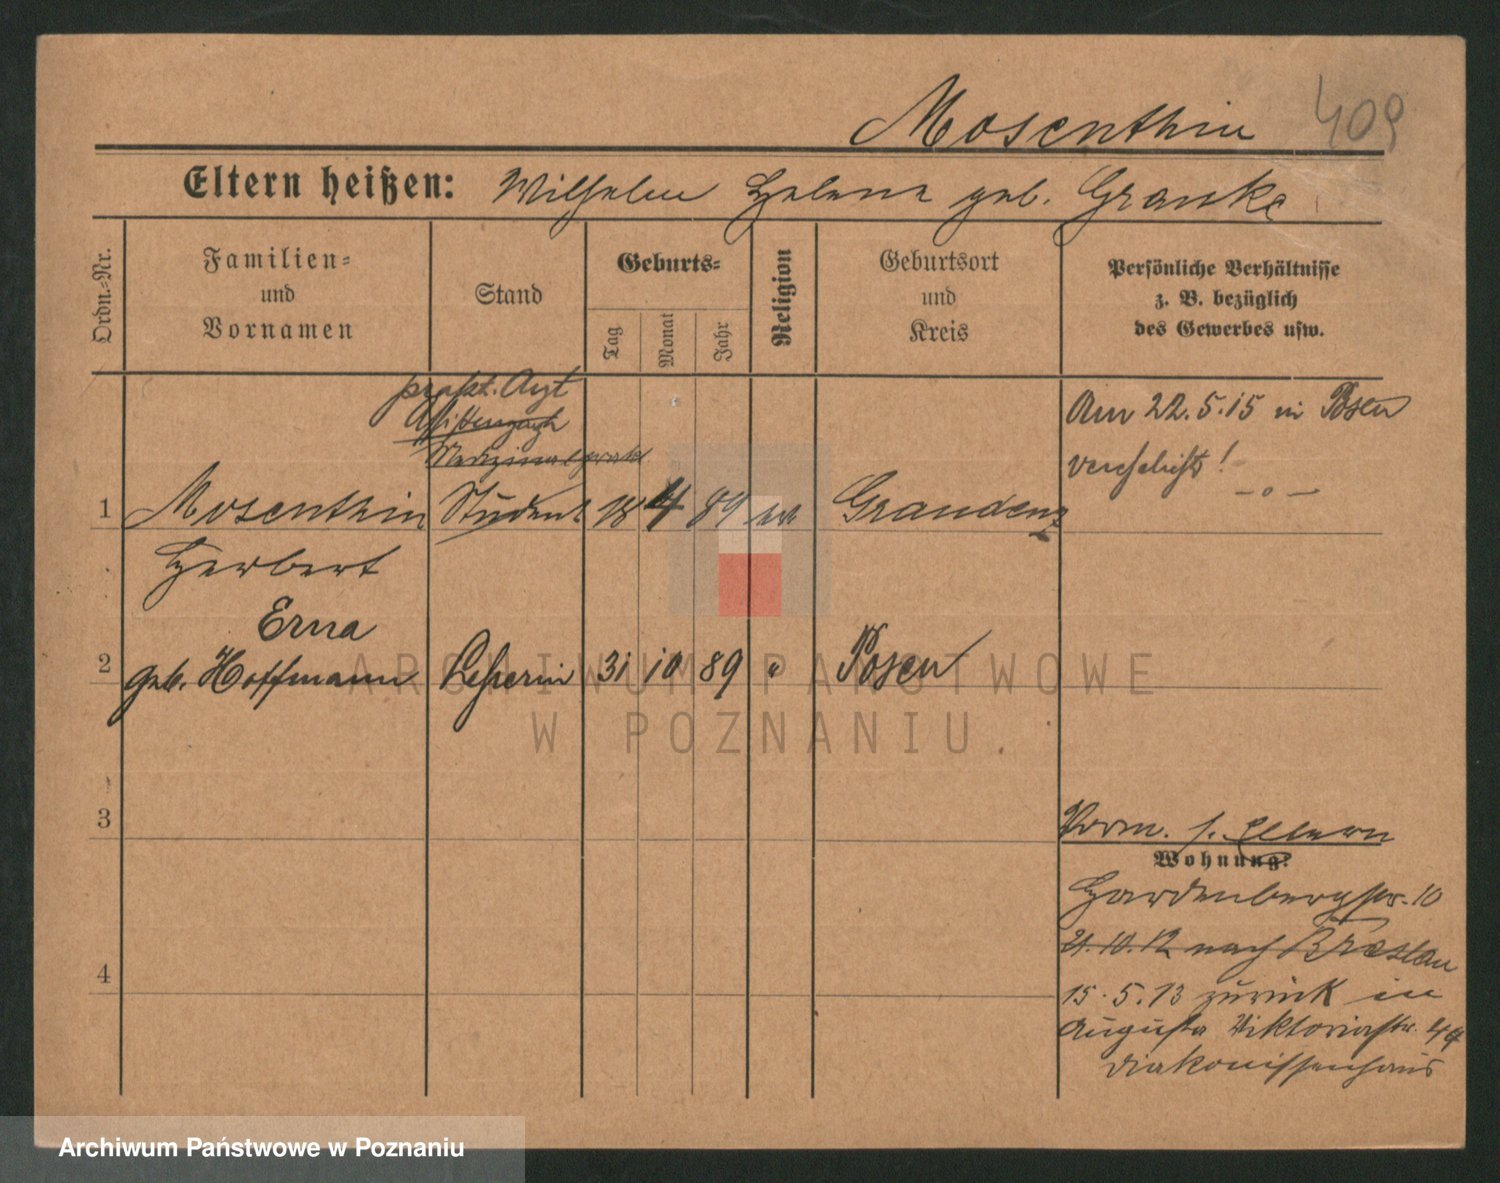 Mosenthin 409
Eltern heißen: Wilhelm Helene geb. Granke
Ordn.-Nr.
Familien-
und
Vornamen
Stand
Geburts-
Tag
Monat
Jahr
Religion
Geburtsort
und
Kreis
Persönliche Verhältnisse
z. B. bezüglich
des Gewerbes usw.
prakt. Arzt
Assistenzarzt
Medizinalprakt
1 Mosenthin Student 18 4 89 ev Graudenz
Herbert
Erna
2 geb. Hoffmann Lehrerin 31 10 89 " Posen
3
4
Am 22.5.15 in Posen
verehelicht!
Vorm. s. Eltern
Wohnung?
Hardenbergstr. 10
21.10.12 nach Breslau
15.5.13 zurück in
Augusta Viktoriastr.
Diakonissenhaus
ARCHIWUM PAŃSTWOWE
W POZNANIU.
Archiwum Państwowe w Poznaniu